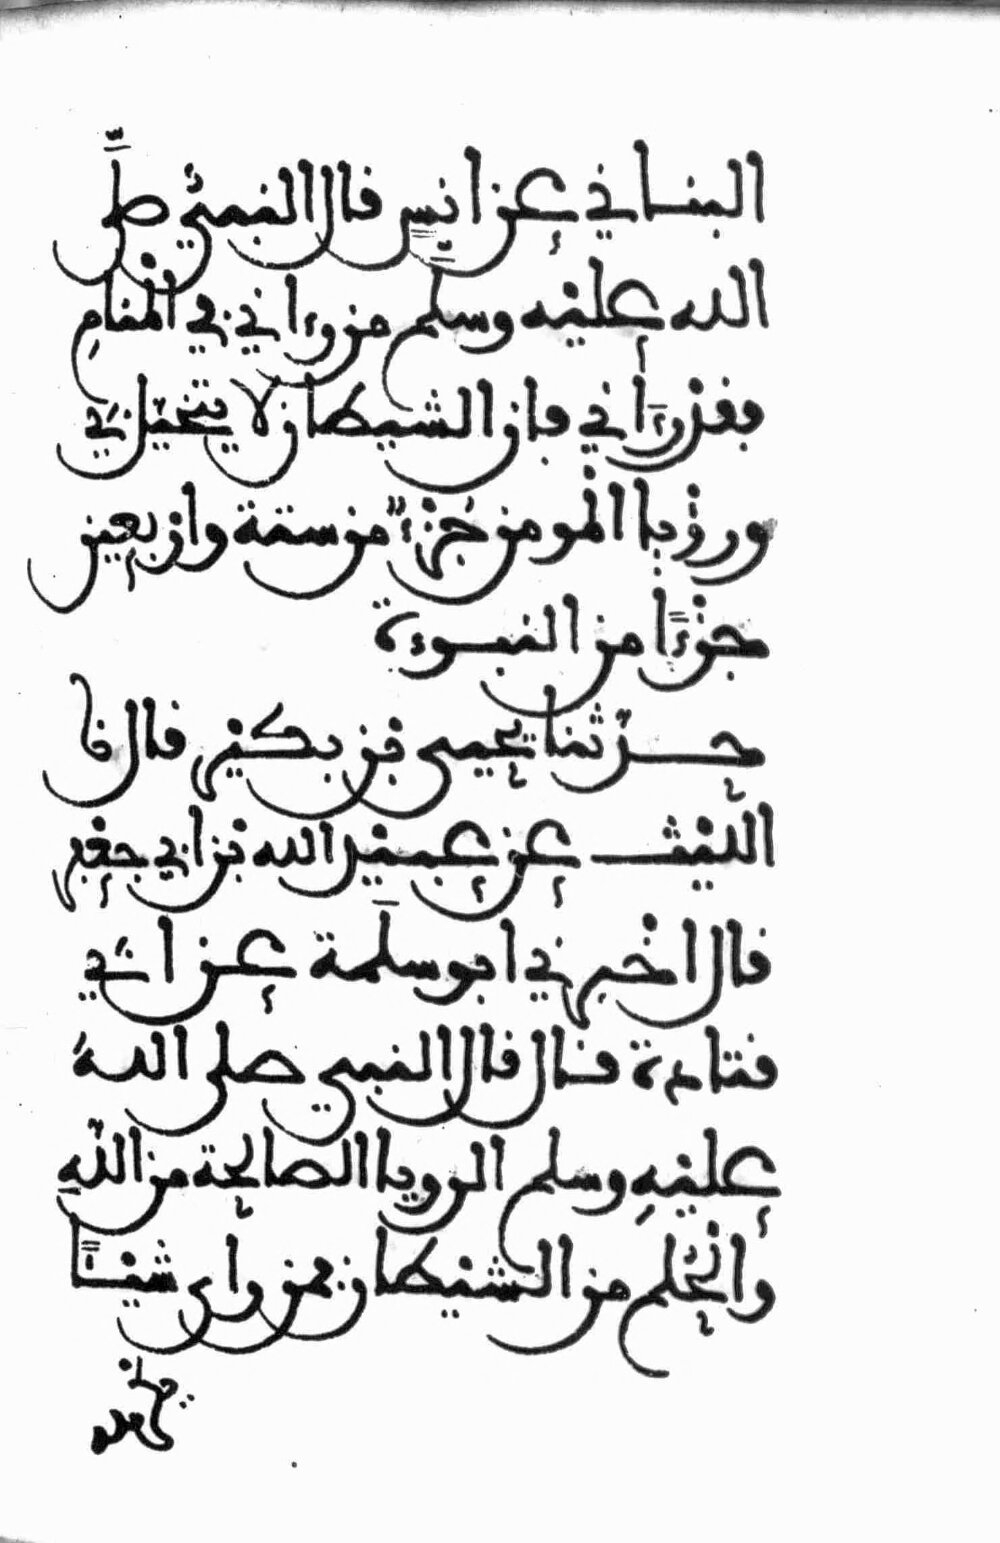 البناني عن انس قال النبي صلى
الله عليه وسلم من رءاني في المنام
فقد رءاني فإن الشيطان لا يتخيل بي
ورؤيا المومن جزء من ستة واربعين
جزءا من النبوءة
حدثنا يحيى بن بكير قال نا
الليث عن عبيد الله بن ابي جعفر
قال اخبرني ابو سلمة عن ابي
قتادة قال قال النبي صلى الله
عليه وسلم الرويا الصالحة من الله
والحلم من الشيطان فمن راى شيئا